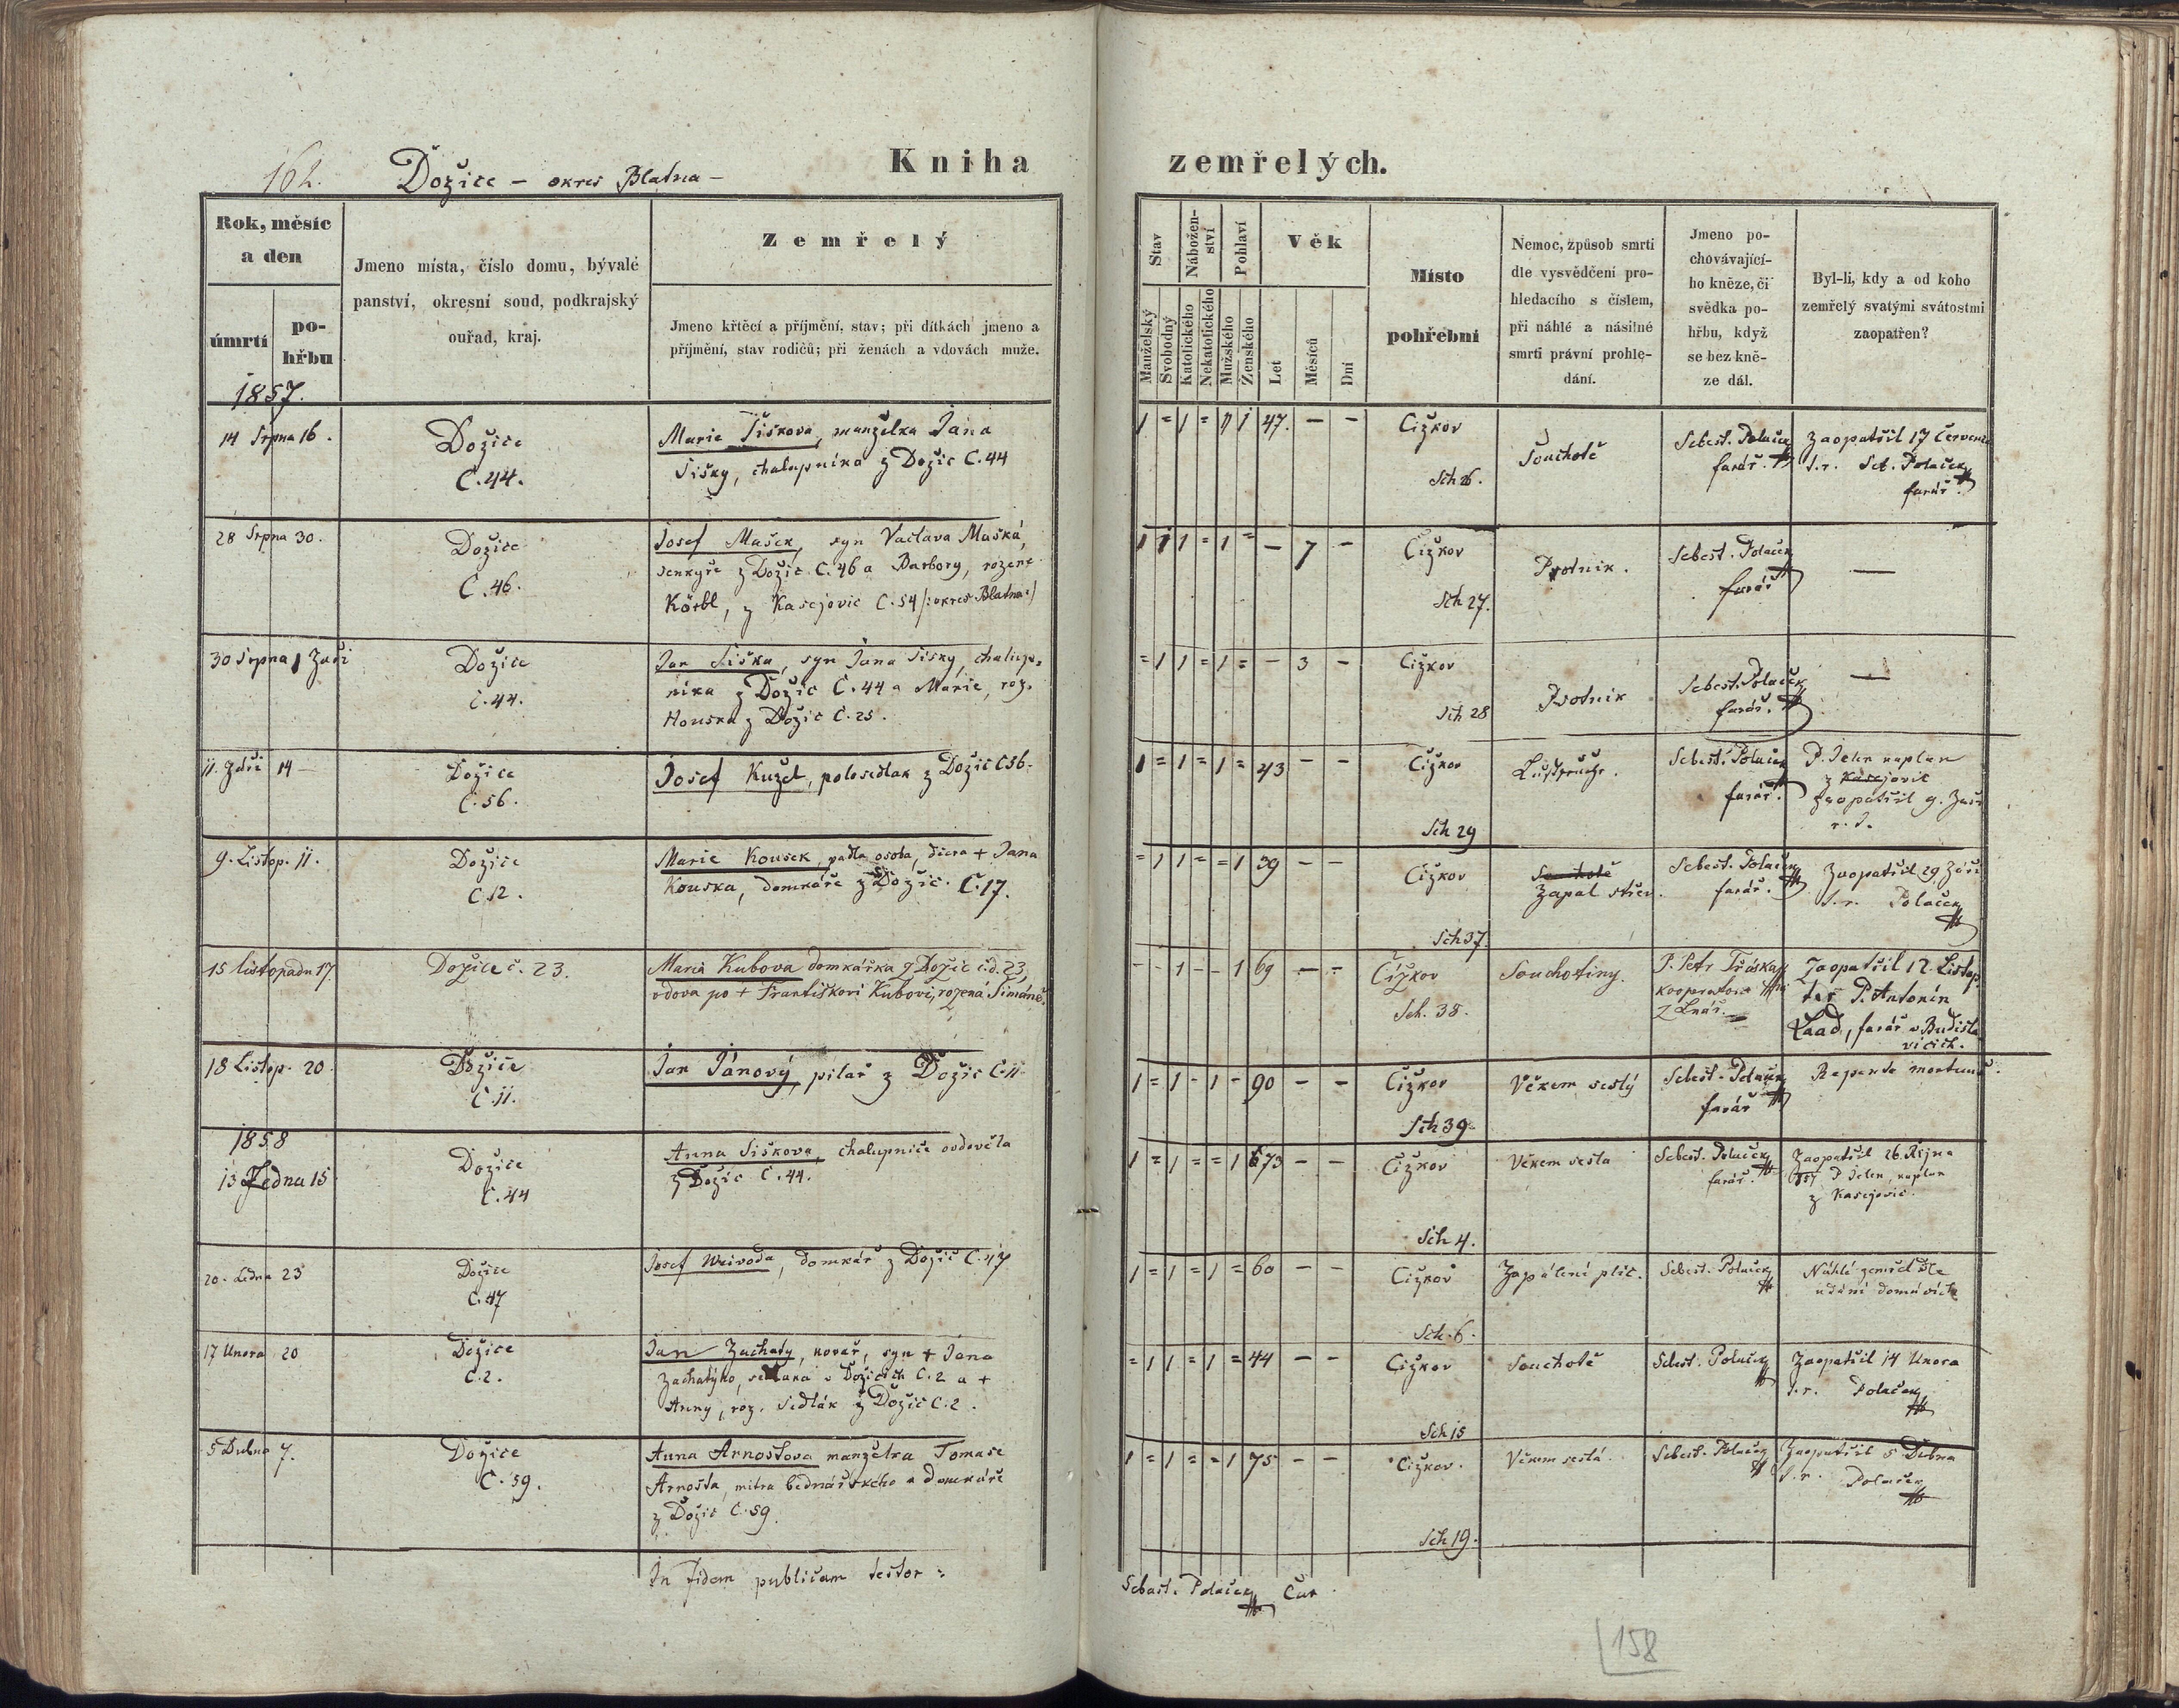 162. Dožice – okres Blatna –
Kniha zemřelých.
Rok, měsíc a den
úmrtí
pohřbu
Jmeno místa, číslo domu, bývalé
panství, okresní soud, podkrajský
ouřad, kraj.
Zemřelý
Jmeno křtěcí a příjmění, stav; při dítkách jmeno a
příjmění, stav rodičů; při ženách a vdovách muže.
Stav
Manželský
Svobodný
Nábožen-
ství
Katolického
Nekatolického
Pohlaví
Mužského
Ženského
Věk
Let
Měsíců
Dní
Místo
pohřební
Nemoc, způsob smrti
dle vysvědčení pro-
hledacího s číslem,
při náhlé a násilné
smrti právní prohle-
dání.
Jmeno po-
chovávající-
ho kněze, či
svědka po-
hřbu, když
se bez kně-
ze dál.
Byl-li, kdy a od koho
zemřelý svatými svátostmi
zaopatřen?
1857.
14 Srpna 16.
Dožice
C. 44.
Marie Šiškova, manželka Jana
Šišky, chalupnika z Dožic C. 44
1 = 1 = 1 47. – –
Čižkov
Sch 26.
Souchotě
Sebest. Polaček
farář.
Zaopatřil 17 Července
S. r. Seb. Polaček
farář.
28 Srpna 30.
Dožice
C. 46.
Josef Mašek, syn Vaclava Maška,
šenkyře z Dožic C. 46 a Barbory, rozené
Körbl, z Kasejovic C. 54 /: okres Blatna :/
1 1 1 = 1 = – 7 –
Čižkov
Sch 27.
Psotnik.
Sebest. Polaček
farář
—
30 Srpna 1 Zaři
Dožice
C. 44.
Jan Šiška, syn Jana Šišky, chalup-
nika z Dožic C. 44 a Marie, roz.
Houska z Dožic C. 25.
= 1 1 = 1 = – 3 –
Čižkov
Sch 28
Psotnik
Sebest. Polaček
farář.
—
11. Zaři 14
Dožice
C. 56.
Josef Kužel, polosedlak z Dožic C 56.
1 = 1 = 1 = 43 – –
Čižkov
Sch 29
Sebest. Polaček
farář.
P. Jelen kaplan
z Kasejovic
zaopatřil 9. Zaři
9. Listop. 11.
Dožice
C 12.
Marie Kousek, padla osoba, dcera + Jana
Kouska, domkáře z Dožic. C. 17.
= 1 1 = = 1 39 – –
Čižkov
Sch 37.
Souchotě
Zapal střev.
Sebest. Polaček
farář.
Zaopatřil 29 Záři
S. r. Polaček
15 listopadu 17
Dožice č. 23.
Maria Kubova domkářka z Dožic č.d. 23,
vdova po + Františkovi Kubovi, rozená Šimáně.
– – 1 – – 1 69 – –
Čížkov
Sch. 38.
Souchotiny.
P. Petr Třáska
kooperator
z Lnář.
Zaopatřil 12. Listop.
též P. Antonín
Laad, farář v Budisla-
vicích.
18 Listop. 20
Dožice
C. 11.
Jan Pánový, pilař z Dožic C. 11
1 = 1 – 1 – 90 – –
Čižkov
Sch 39
Věkem sešlý
Sebest. Polaček
farář
Repente mortuus.
1858
13 Ledna 15
Dožice
C. 44
Anna Šiškova, chalupnice ovdověla
z Dožic C. 44.
1 = 1 = = 1 73 – –
Čižkov
Sch 4.
Věkem sešla
Sebest. Polaček
farář.
Zaopatřil 26. Řijna
857 P Jelen, kaplan
z Kasejovic.
20. Ledna 23
Dožice
C. 47
Josef Weivoda, domkář z Dožic C. 47
1 = 1 = 1 = 60 – –
Čižkov
Sch. 6.
Zapálení plic.
Sebest. Polaček
Náhlé zemřel dle
udání domácích
17 Unora 20
Dožice
C. 2.
Jan Zachatý, kovář, syn + Jana
Zachatýho, sedlaka v Dožicich C. 2 a +
Anny, roz. Sedlák z Dožic C. 2.
= 1 1 = 1 = 44 – –
Čižkov
Sch 15
Souchotě
Sebest. Polaček
Zaopatřil 14 Unora
S. r. Polaček
5 Dubna 7.
Dožice
C. 59.
Anna Arnoštova manželka Tomaše
Arnošta, mistra bednářského a domkáře
z Dožic C. 59.
1 = 1 = = 1 75 – –
Čižkov.
Sch 19.
Věkem sešlá.
Sebest. Polaček
Zaopatřil 5 Dubna
S. r. Polaček
In fidem publicam testor:
Sebast. Polaček Cur.
158